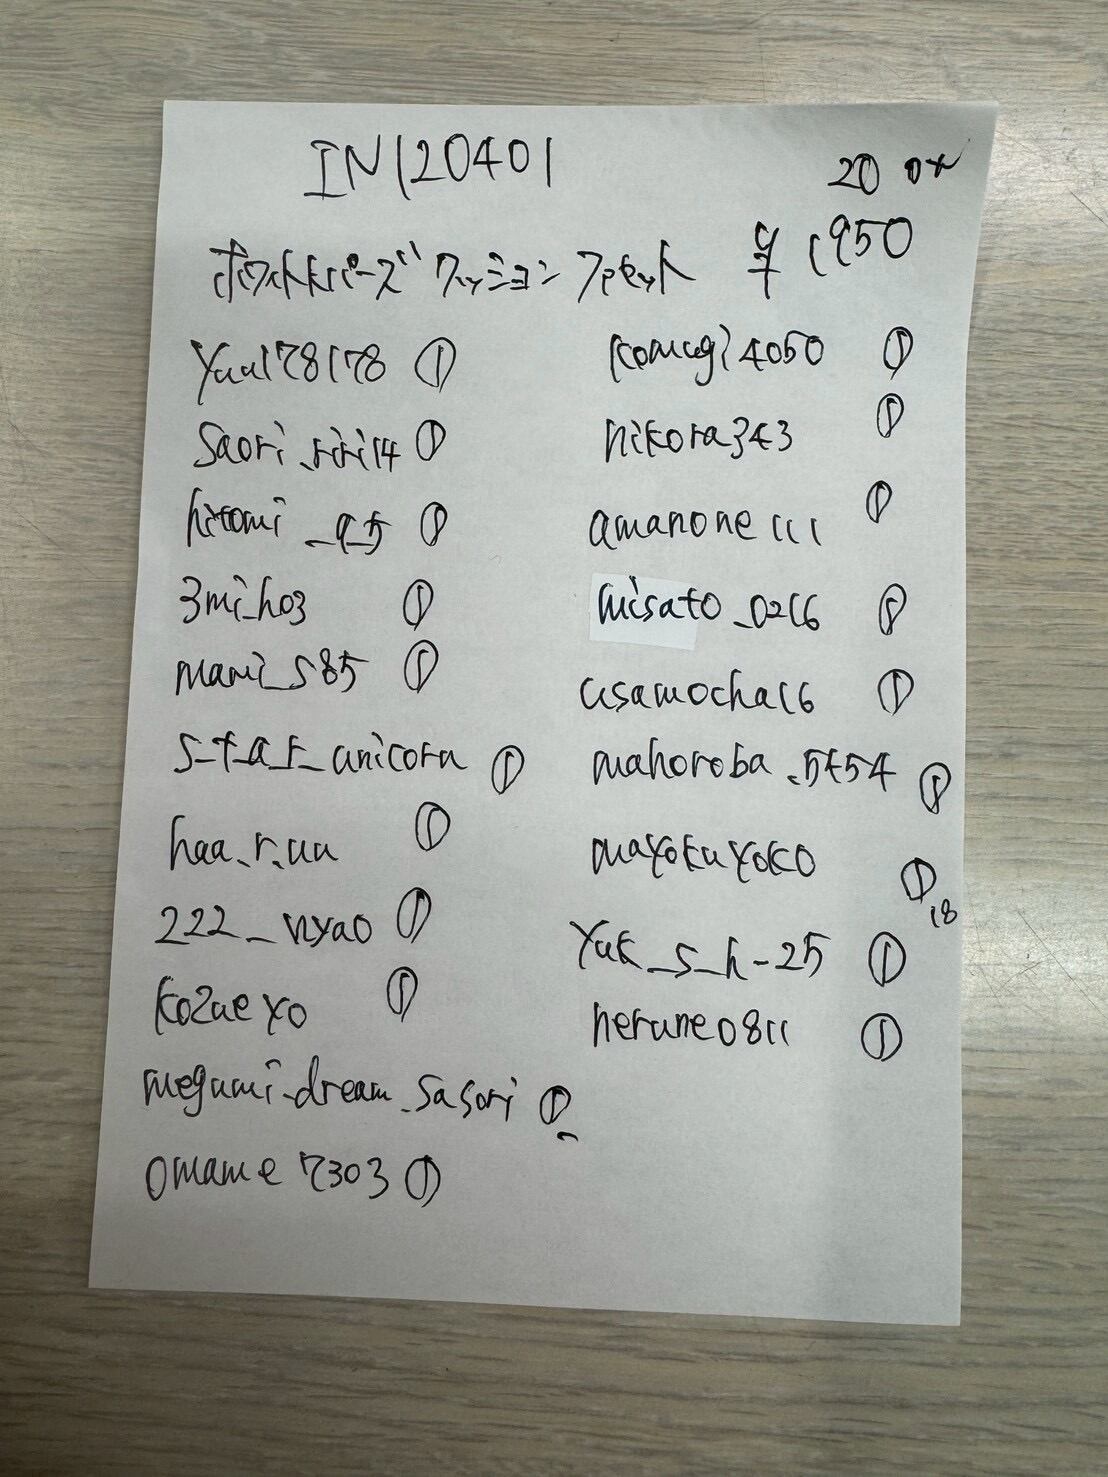 IN120401
20
¥1950
yuu178178 ①
saori_riri14 ①
hitomi_9_5 ①
3mi_ho3 ①
mami_s85 ①
s_t_a_r_unicorn ①
haa_r_uu ①
222_nyao ①
kozueyo ①
megumi_dream_sasori ①
omame7303 ①
komugi4050 ①
nikora343 ①
amanone111 ①
misato_0216 ①
usamocha16 ①
mahoroba_5454 ①
mayokuyoko ①
18
yuk_s_h-25 ①
nerune0811 ①